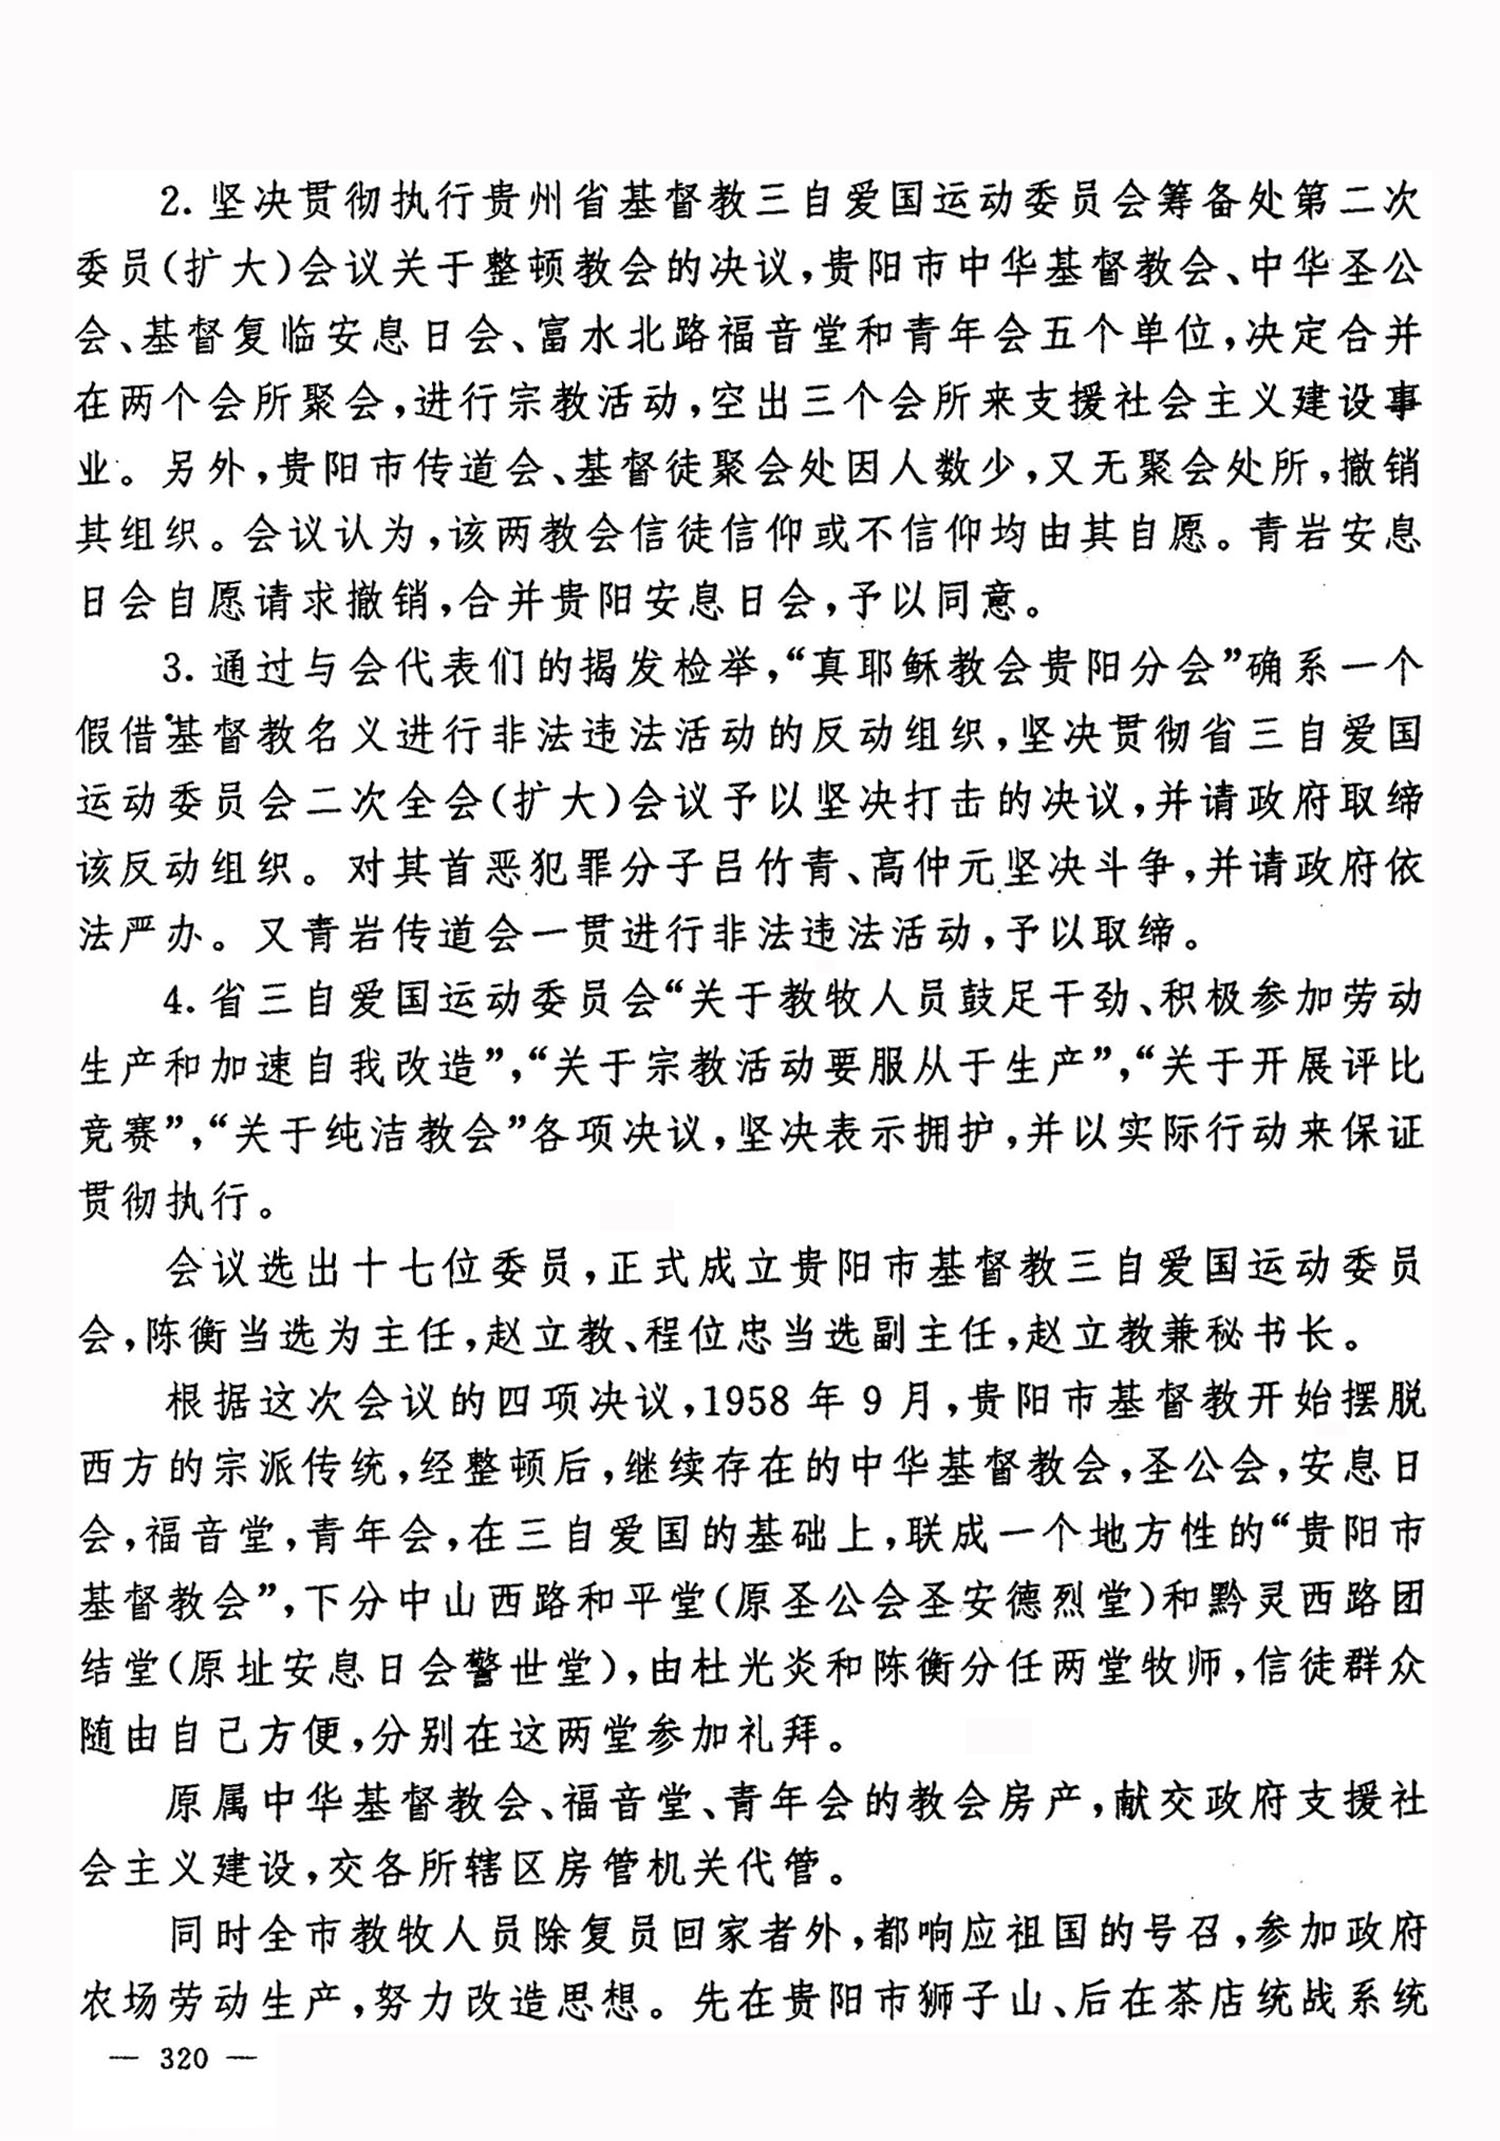 2. 坚决贯彻执行贵州省基督教三自爱国运动委员会筹备处第二次
委员(扩大)会议关于整顿教会的决议,贵阳市中华基督教会、中华圣公
会、基督复临安息日会、富水北路福音堂和青年会五个单位,决定合并
在两个会所聚会,进行宗教活动,空出三个会所来支援社会主义建设事
业。另外,贵阳市传道会、基督徒聚会处因人数少,又无聚会处所,撤销
其组织。会议认为,该两教会信徒信仰或不信仰均由其自愿。青岩安息
日会自愿请求撤销,合并贵阳安息日会,予以同意。
3. 通过与会代表们的揭发检举,“真耶稣教会贵阳分会”确系一个
假借基督教名义进行非法违法活动的反动组织,坚决贯彻省三自爱国
运动委员会二次全会(扩大)会议予以坚决打击的决议,并请政府取缔
该反动组织。对其首恶犯罪分子吕竹青、高仲元坚决斗争,并请政府依
法严办。又青岩传道会一贯进行非法违法活动,予以取缔。
4. 省三自爱国运动委员会“关于教牧人员鼓足干劲、积极参加劳动
生产和加速自我改造”,“关于宗教活动要服从于生产”,“关于开展评比
竞赛”,“关于纯洁教会”各项决议,坚决表示拥护,并以实际行动来保证
贯彻执行。
会议选出十七位委员,正式成立贵阳市基督教三自爱国运动委员
会,陈衡当选为主任,赵立教、程位忠当选副主任,赵立教兼秘书长。
根据这次会议的四项决议,1958 年 9 月,贵阳市基督教开始摆脱
西方的宗派传统,经整顿后,继续存在的中华基督教会,圣公会,安息日
会,福音堂,青年会,在三自爱国的基础上,联成一个地方性的“贵阳市
基督教会”,下分中山西路和平堂(原圣公会圣安德烈堂)和黔灵西路团
结堂(原址安息日会警世堂),由杜光炎和陈衡分任两堂牧师,信徒群众
随由自己方便,分别在这两堂参加礼拜。
原属中华基督教会、福音堂、青年会的教会房产,献交政府支援社
会主义建设,交各所辖区房管机关代管。
同时全市教牧人员除复员回家者外,都响应祖国的号召,参加政府
农场劳动生产,努力改造思想。先在贵阳市狮子山、后在茶店统战系统
— 320 —